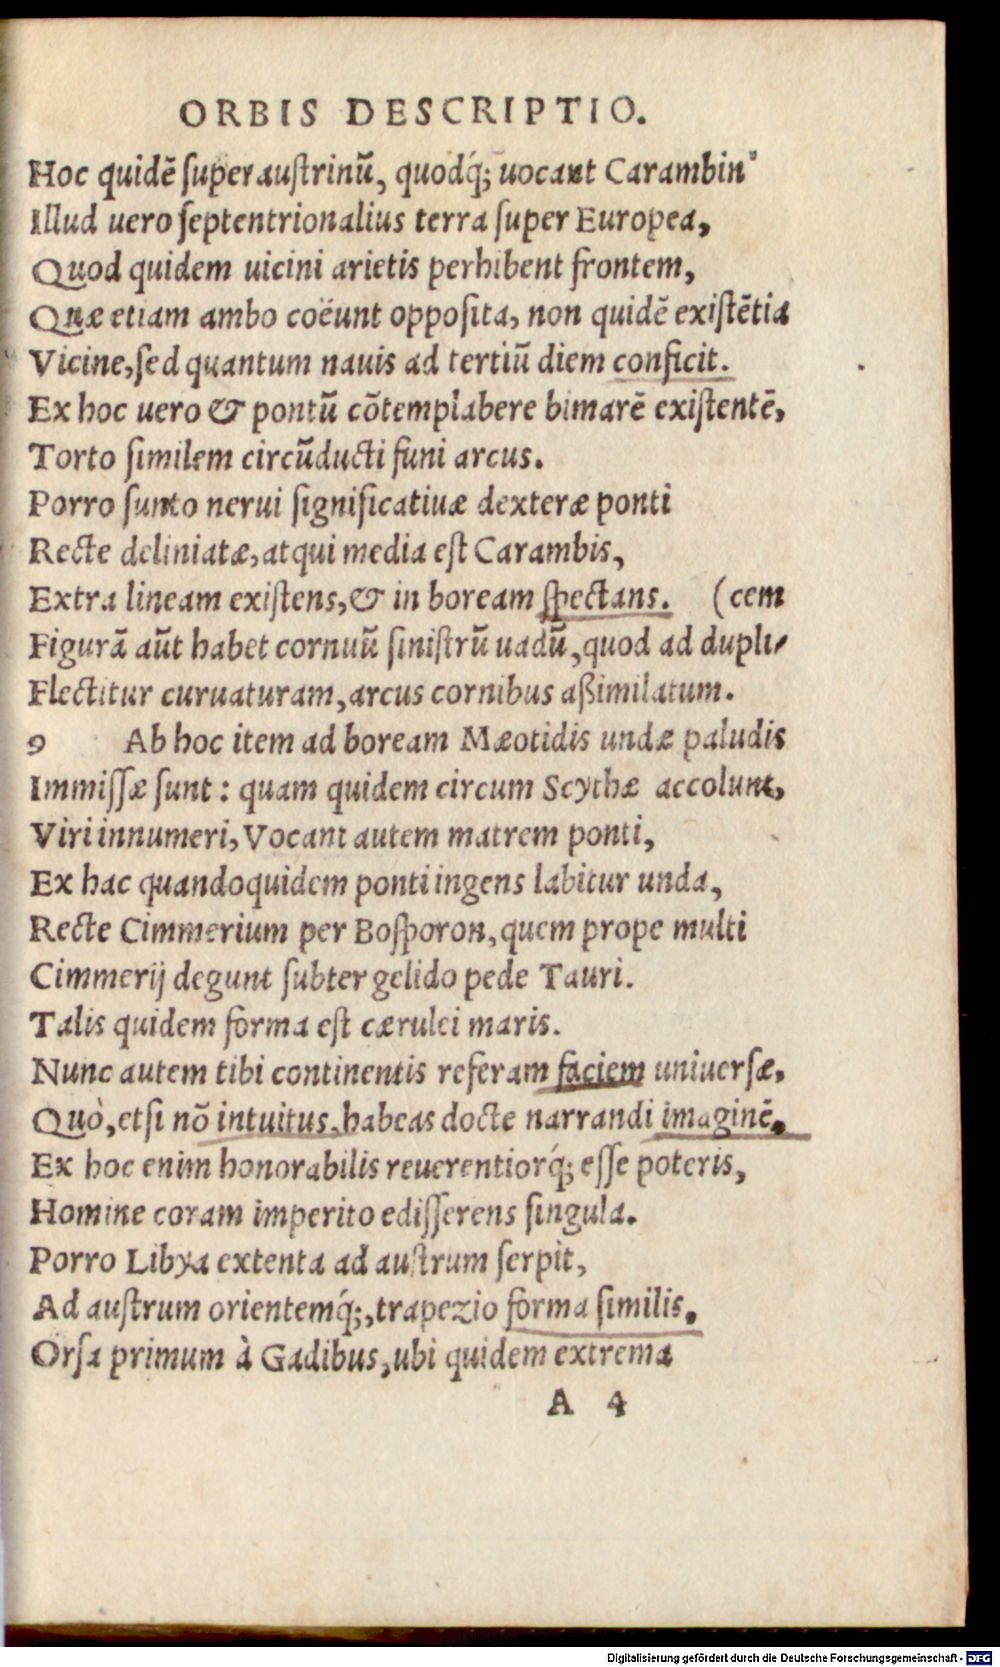 ORBIS DESCRIPTIO.
Hoc quidē super austrinū, quodq́; uocant Carambin
Illud uero septentrionalius terra super Europea,
Quod quidem uicini arietis perhibent frontem,
Quæ etiam ambo coëunt opposita, non quidē existētia
Vicine, sed quantum nauis ad tertiū diem conficit.
Ex hoc uero & pontū cōtemplabere bimarē existentē,
Torto similem circūducti funi arcus.
Porro sunto nerui significatiuæ dexteræ ponti
Recte deliniatæ, atqui media est Carambis,
Extra lineam existens, & in boream spectans. (cem
Figurā aūt habet cornuū sinistrū uadū, quod ad dupli-
Flectitur curuaturam, arcus cornibus aßimilatum.
9 Ab hoc item ad boream Mæotidis undæ paludis
Immissæ sunt: quam quidem circum Scythæ accolunt,
Viri innumeri, Vocant autem matrem ponti,
Ex hac quandoquidem ponti ingens labitur unda,
Recte Cimmerium per Bosporon, quem prope multi
Cimmerij degunt subter gelido pede Tauri.
Talis quidem forma est cærulei maris.
Nunc autem tibi continentis referam faciem uniuersæ,
Quò, etsi nō intuitus, habeas docte narrandi imaginē.
Ex hoc enim honorabilis reuerentiorq́; esse poteris,
Homine coram imperito edisserens singula.
Porro Libya extenta ad austrum serpit,
Ad austrum orientemq́;, trapezio forma similis.
Orsa primum à Gadibus, ubi quidem extrema
A 4
Digitalisierung gefördert durch die Deutsche Forschungsgemeinschaft - DFG